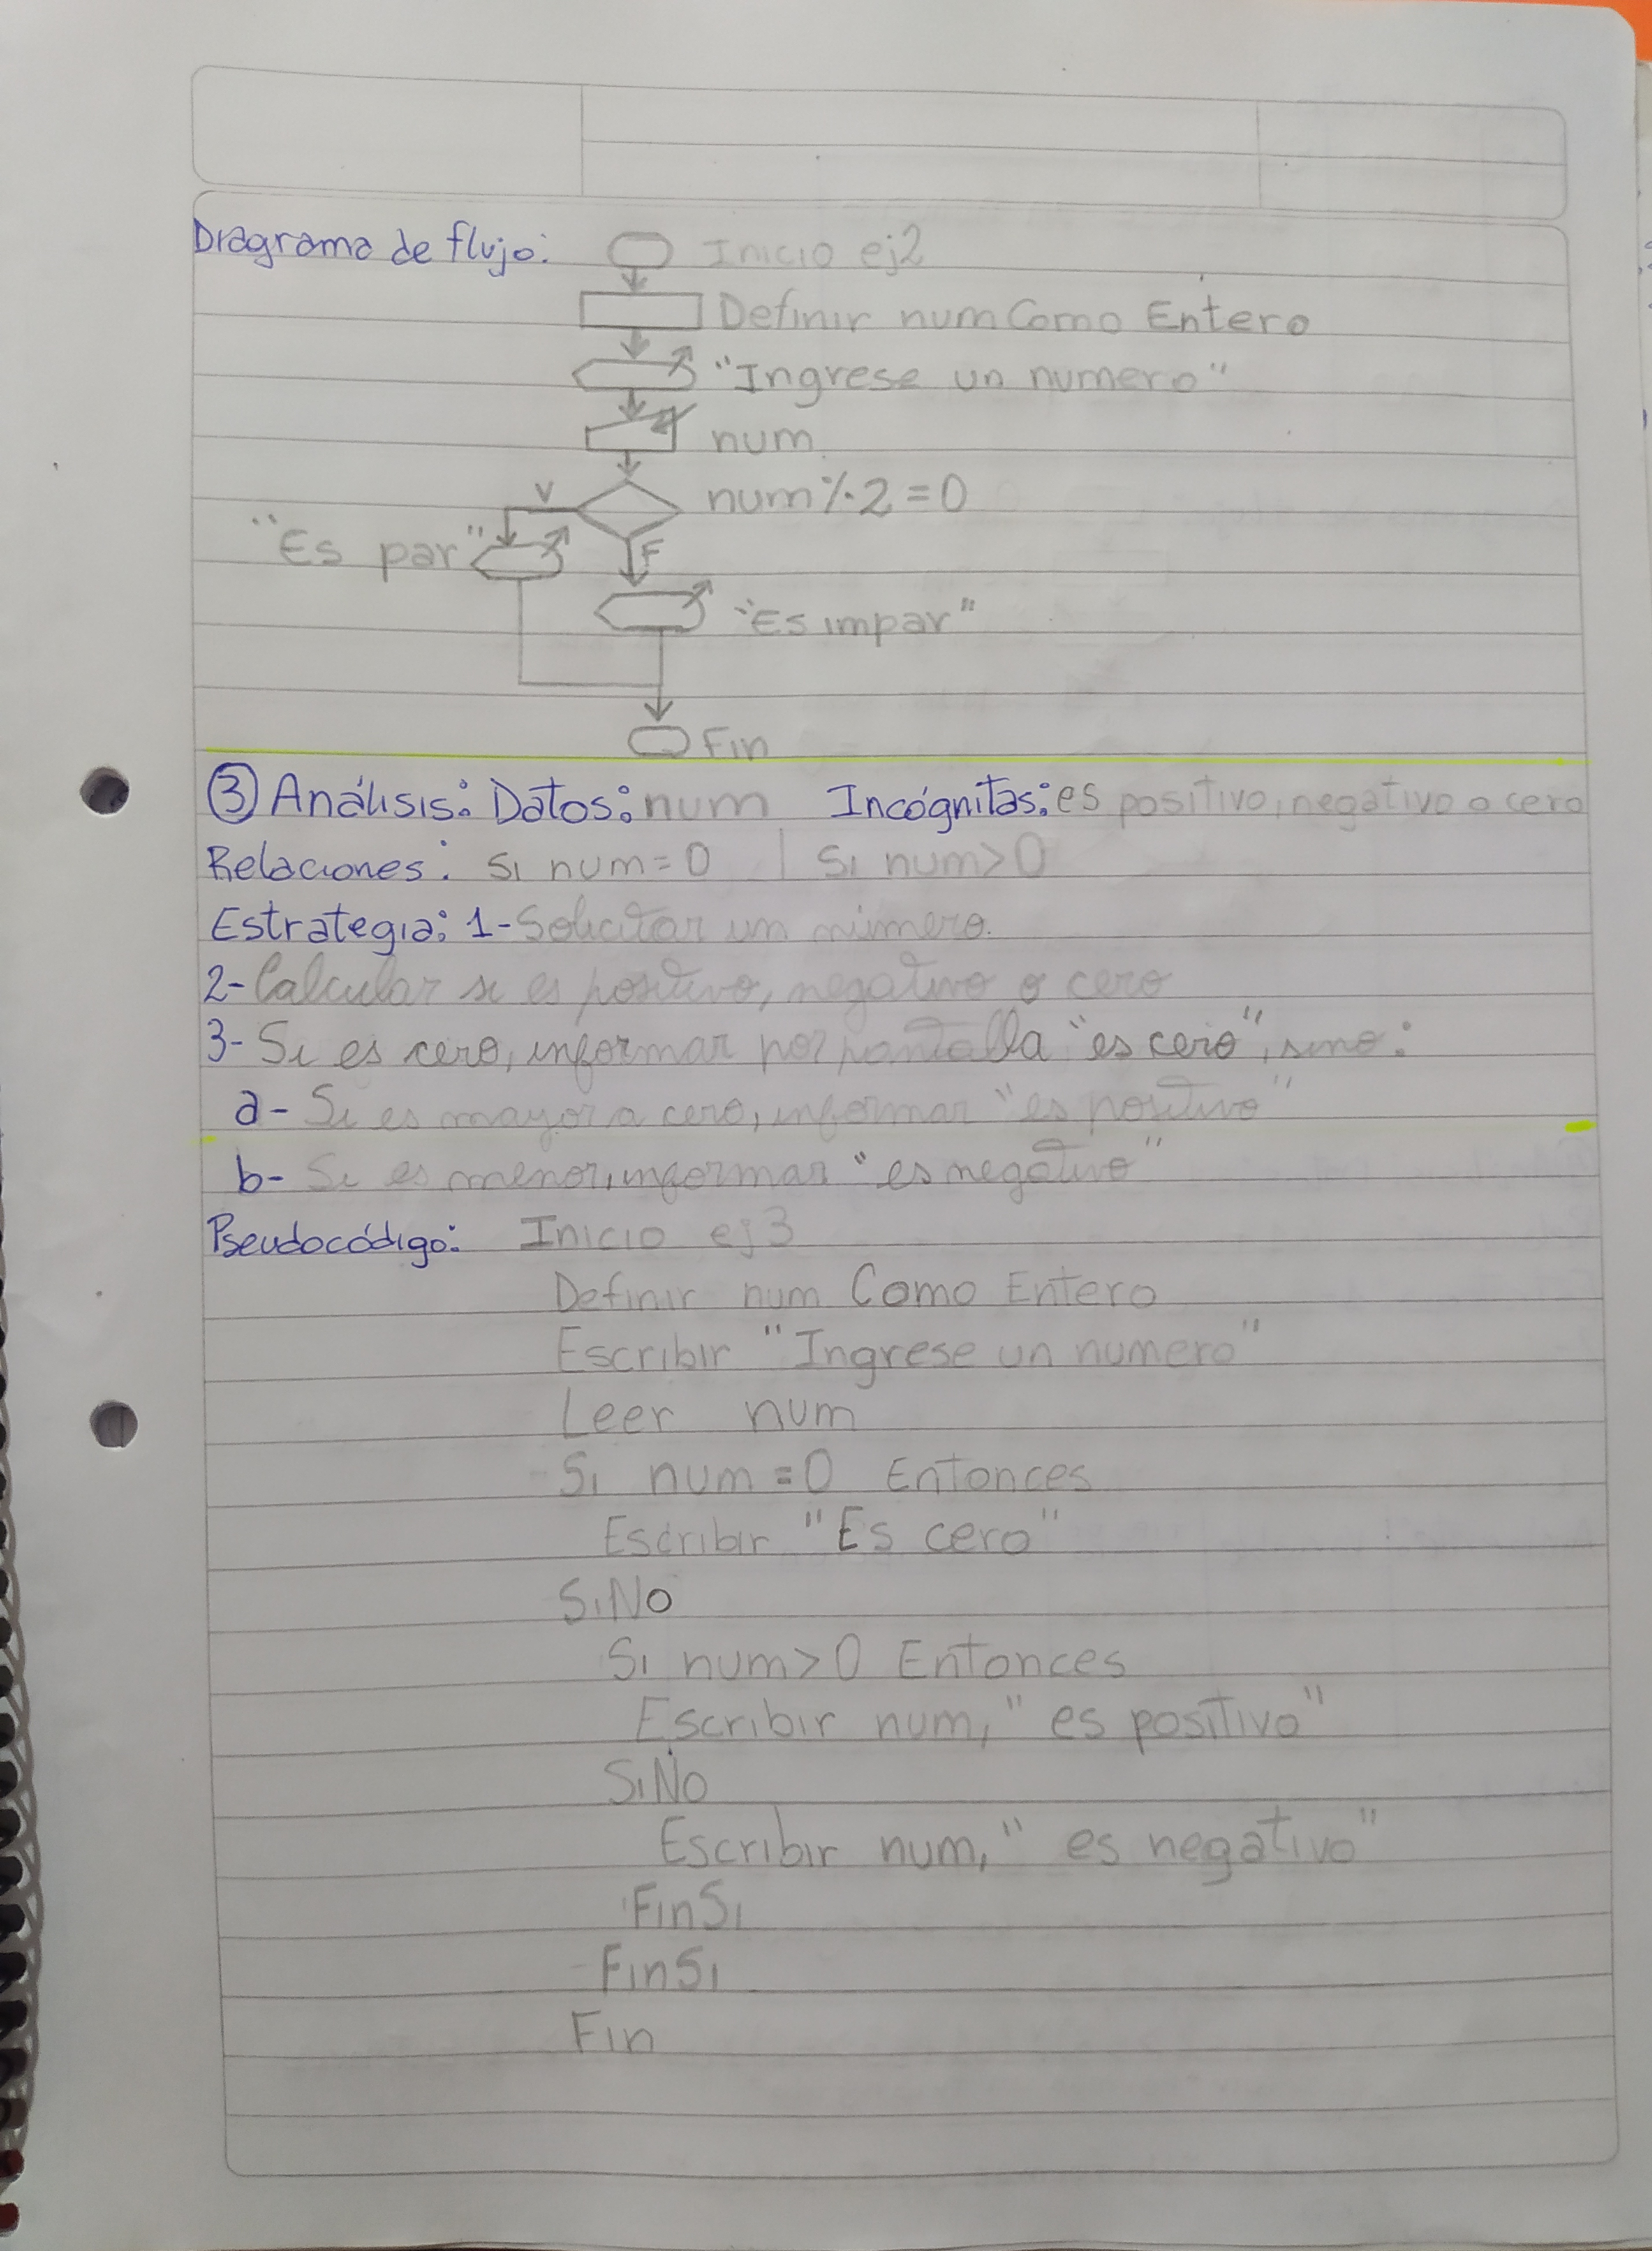 Diagrama de flujo: Inicio ej2
Definir num Como Entero
"Ingrese un numero"
num
V num % 2 = 0
"Es par" F
"Es impar"
Fin
3 Análisis: Datos: num Incógnitas: es positivo, negativo o cero
Relaciones: Si num = 0 | Si num > 0
Estrategia: 1- Solicitar un número.
2- Calcular si es positivo, negativo o cero
3- Si es cero, informar por pantalla "es cero", sino:
a- Si es mayor a cero, informar "es positivo"
b- Si es menor, informar "es negativo"
Pseudocódigo: Inicio ej3
Definir num Como Entero
Escribir "Ingrese un numero"
Leer num
Si num = 0 Entonces
Escribir "Es cero"
SiNo
Si num > 0 Entonces
Escribir num, " es positivo"
SiNo
Escribir num, " es negativo"
FinSi
FinSi
Fin